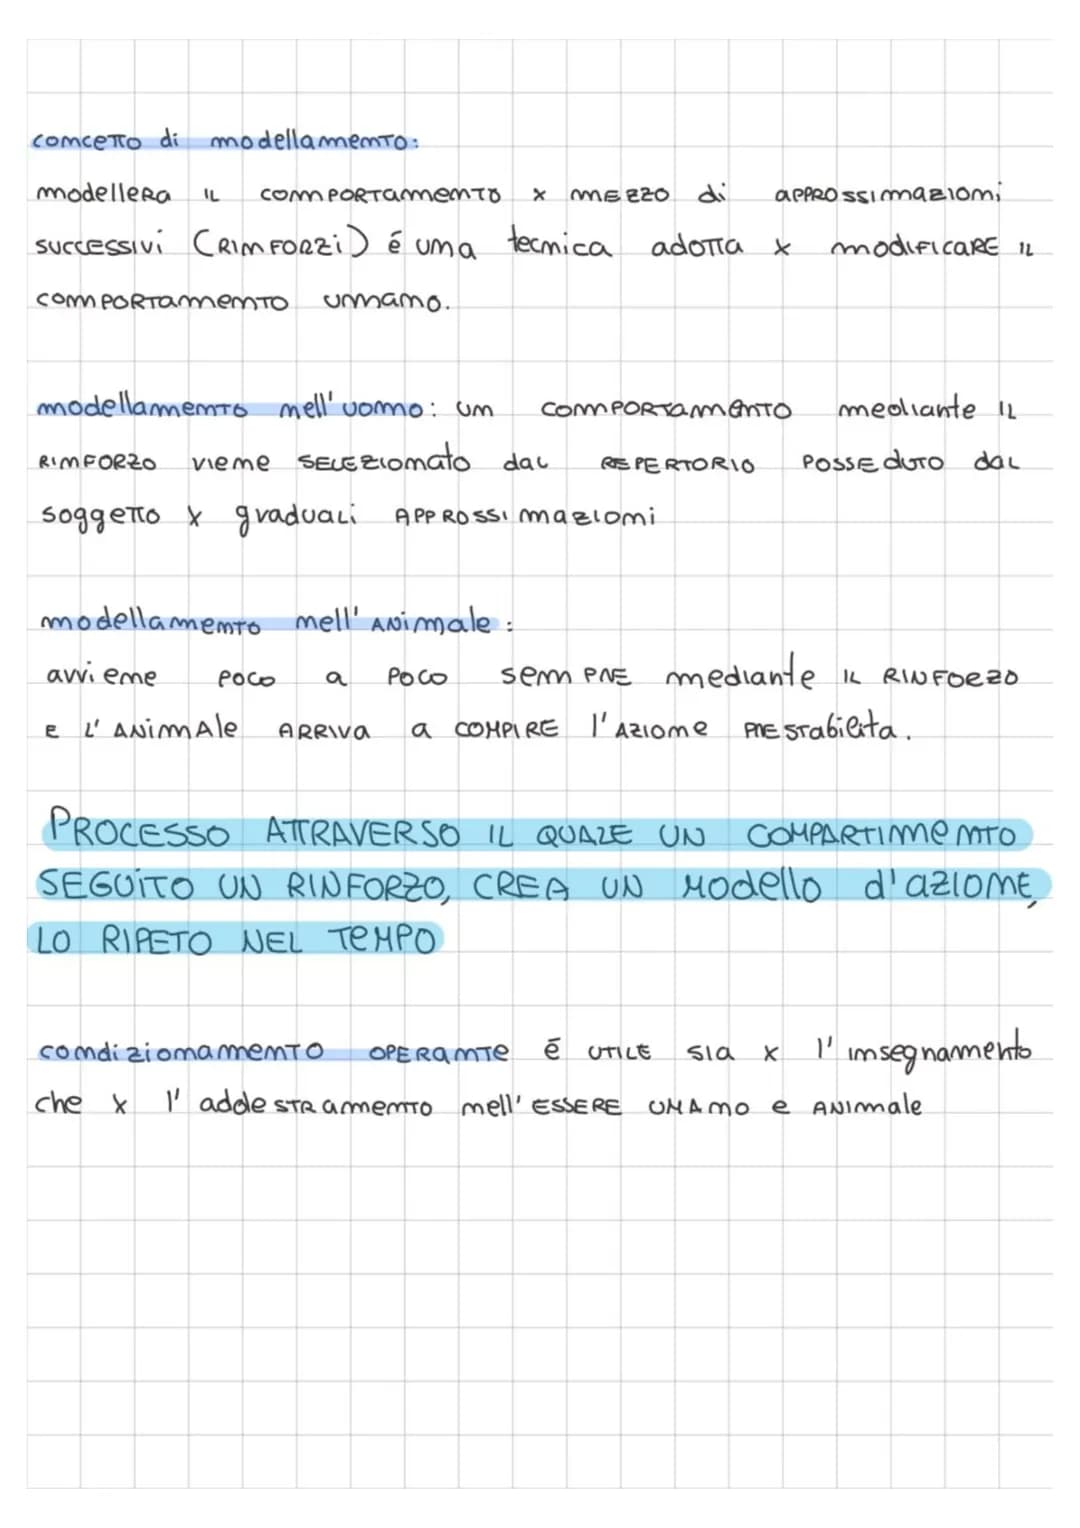 concetto di modellamento:
modellera il comportamento x mezzo di approssimazioni
successivi (rinforzi) é una tecnica adotta x modificare il
comportamento unmano.
modellamento nell'uomo: un comportamento mediante il
rinforzo viene selezionato dal repertorio posseduto dal
soggetto x graduali approssimazioni
modellamento nell'animale:
avviene poco a poco sempre mediante il RINFORZO
E L'ANIMALE ARRIVA a COMPIRE l'azione prestabilita.
PROCESSO ATTRAVERSO IL QUALE UN COMPARTIMENTO
SEGUITO UN RINFORZO, CREA UN Modello d'azione,
LO RIPETO NEL TEMPO
condizionamento operante é utile sia x l'insegnamento
che x l'addestramento nell'essere umano e animale